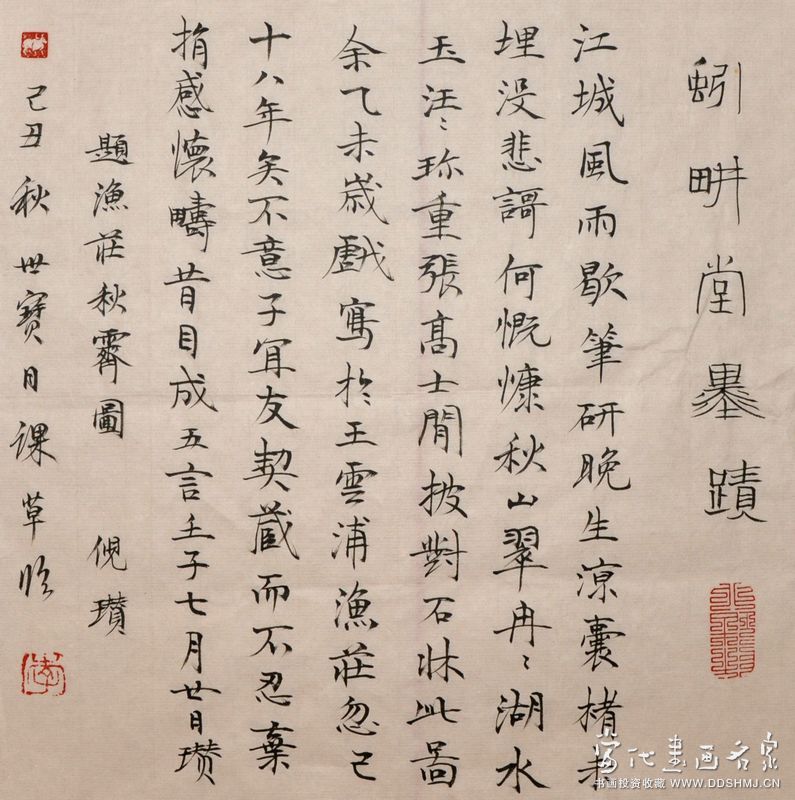 蚓畊堂墨蹟
江城風雨歇筆研晚生涼囊楮未
埋没悲謌何慨慷秋山翠冉〻湖水
玉汪〻珍重張髙士閒披對石牀此啚
余乙未嵗戲寫於王雲浦漁莊忽已
十八年矣不意子冝友契藏而不忍棄
捐感懷疇昔目成五言壬子七月廿日瓚
題漁莊秋霽圖 倪瓚
己丑秋世寶日課草临
當代書画名家
书画投资收藏 WWW.DDSHMJ.CN